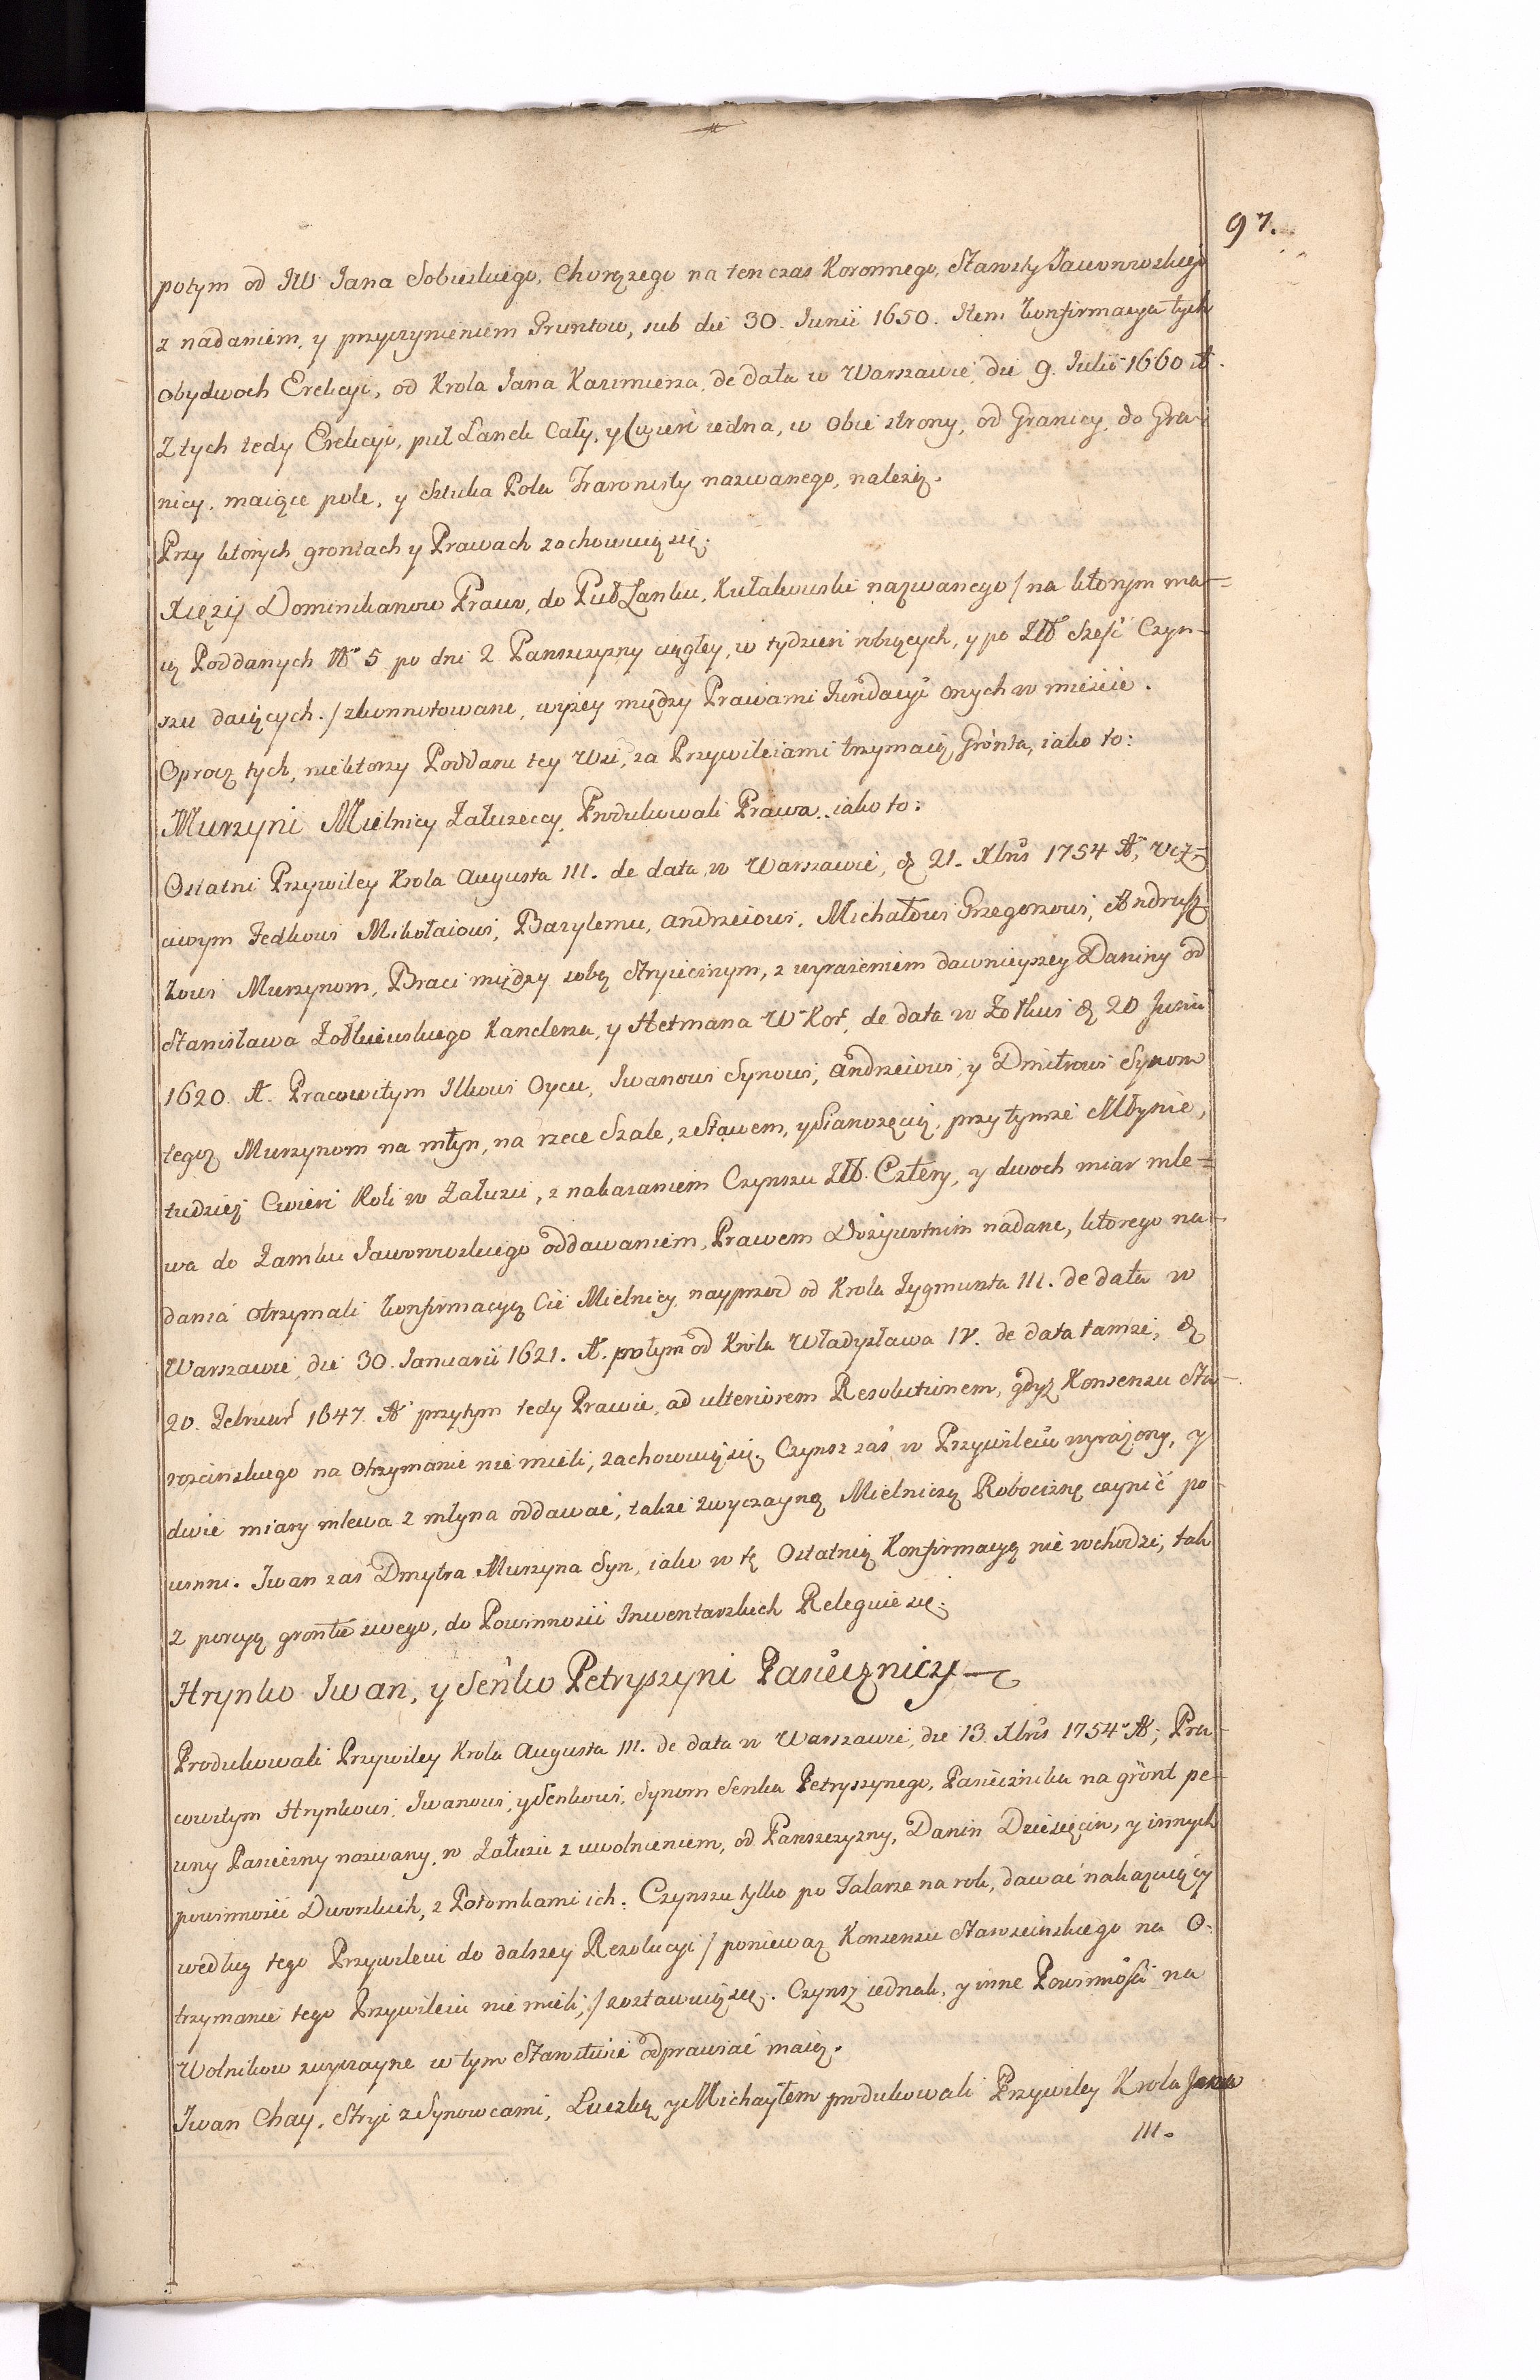 97.
potym od JW Jana Sobieskiego, Chorązego na ten czas Koronnego, Starosty Jaworowskiego
z nadaniem, y przyczynieniem Gruntow, sub die 30. Junii 1650. Item konfirmacya tych
obydwoch Erekcyi, od Krola Jana Kazimierza, de data w Warszawie, die 9. Julii 1660 A.
Z tych tedy Erekcyi, puł Łanek Cały, y Cwierć iedna, w obie strony, od Granicy, do Gra-
nicy, maiące pole, y sztuka Pola Trawnisty nazwanego, nalezią.
Przy ktorych grontach y Prawach zachowuią się.
Xięzy Dominikanow Praw, do Puł Łanku, Kułakowski nazwanego / na ktorym ma-
ią Poddanych No 5 po dni 2 Panszczyzny ciągłey, w tydzien robiących, y po Zł Szesć Czyn-
szu daiących. / zkonnotowane, wyzey między Prawami Fundacyi onych w miescie.
Oprocz tych, niektorzy Poddani tey Wsi, za Przywileiami trzymaią Gronta, iako to:
Murzyni Mielnicy Załuzeccy, Produkowali Prawa.. iako to:
Ostatni Przywiley Krola Augusta III. de data w Warszawie, d 21. Xbris 1754 A, Ucz-
ciwym Fedkowi Mikołaiowi, Bazylemu, Andrzeiowi, Michałowi Grzegorzowi, Andrusz-
kowi Murzynom, Braci między sobą Stryiecznym, z wyrazeniem dawnieyszey Daniny od
Stanisława Zołkiewskiego Kanclerza, y Hetmana W Kor, de data w Zołkwi d 20 Junii
1620. A. Pracowitym Ilkowi Oycu, Iwanowi Synowi, Andrzeiowi, y Dmitrowi Synom
tegoz Murzynom na młyn, na rzece Szkle, z Stawem, y Sianozęcią, przy tymze Młynie,
tudziez Cwierć Roli w Załuzu, z nakazaniem Czynszu Zł. Cztery, y dwoch miar mle-
wa do Zamku Jaworowskiego oddawaniem, Prawem Dozywotnim nadane, ktorego na-
dania otrzymali konfirmacyą Cii Mielnicy, nayprzod od Krola Zygmunta III. de data w
Warszawie, die 30. Januarii 1621. A. potym od Krola Władysława IV. de data tamze, d
20. Februar 1647. A przytym tedy Prawie, ad ulteriorem Resolutionem, gdyz Konsensu Sta-
roscinskiego na otrzymanie nie mieli, zachowuią się, Czynsz zas w Przywileiu wyrazony, y
dwie miary mlewa z młyna oddawać, takze zwyczayną Mielniczą Robociznę czynić po-
winni. Iwan zas Dmytra Murzyna Syn, iako w tę Ostatnią Konfirmacyą nie wchodzi, tak
z porcyą grontu swego, do Powinnosci Inwentarskich Releguie się.
Hrynko Iwan, y Senko Petryszyni Pasiecznicy
Produkowali Przywiley Krola Augusta III. de data w Warszawie, die 13. Xbris 1754 A; Pra-
cowitym Hrynkowi, Iwanowi, y Senkowi, Synom Senka Petryszynego, Pasiecznika na gront pe-
wny Pasieczny nazwany, w Załuzu z uwolnieniem, od Panszczyzny, Danin Dziesięcin, y innych
powinnosci Dworskich, z Potomkami ich. Czynszu tylko po Talarze na rok, dawać nakazuiący
według tego Przywileiu do dalszey Rezolucyi / poniewaz Konsensu Staroscinskiego na O-
trzymanie tego Przywileiu nie mieli, / zostawuią się. Czynsz iednak, y inne Powinnosci na
Wolnikow zwyczayne w tym Starostwie odprawiać maią.
Iwan Chay, Stryi z Synowcami, Łuczką y Michayłem produkowali Przywiley Krola Jana
III.